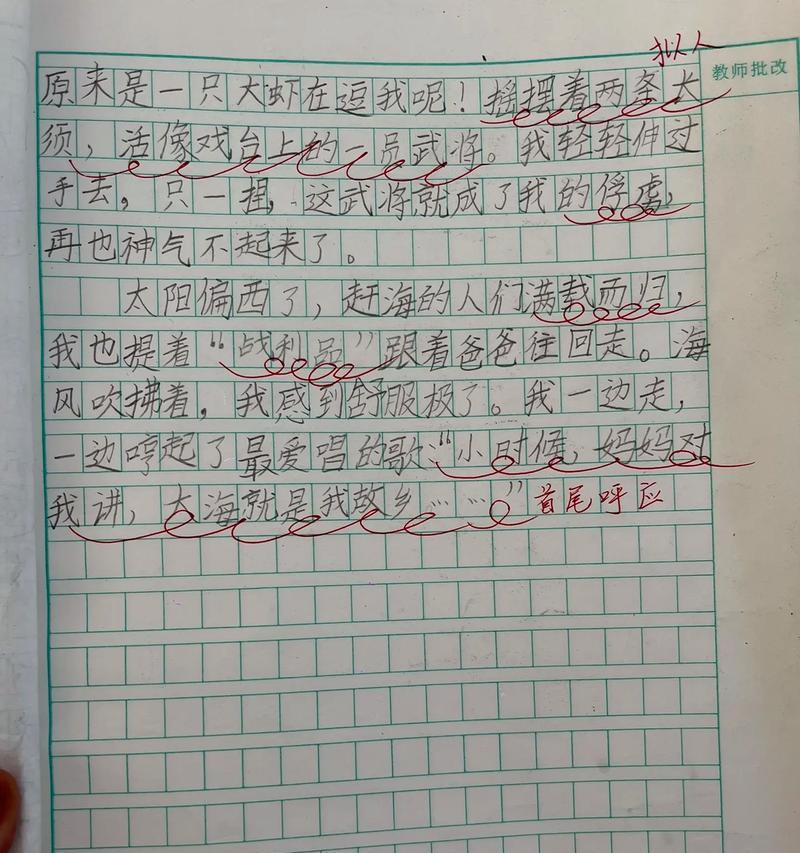 拟人
教师批改
原来是一只大虾在逗我呢！摇摆着两条大
须，活像戏台上的一员武将。我轻轻伸过
手去，只一捏，这武将就成了我的俘虏，
再也神气不起来了。
太阳偏西了，赶海的人们满载而归，
我也提着“战利品”跟着爸爸往回走。海
风吹拂着，我感到舒服极了。我一边走，
一边哼起了最爱唱的歌：“小时候，妈妈对
我讲，大海就是我故乡……”首尾呼应